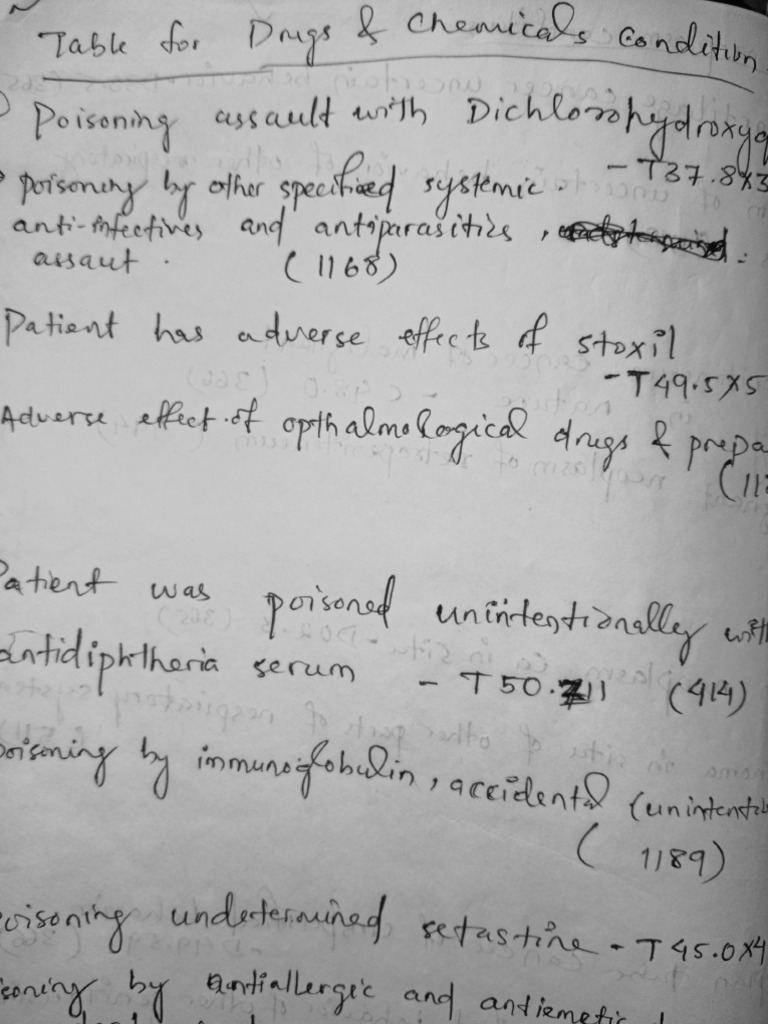 Table for Drugs & Chemicals Condition
Poisoning assault with Dichlorohydroxyq
- T37.8X3
poisoning by other specified systemic.
anti-infectives and antiparasitics,
assaut. (1168)
Patient has adverse effects of stoxil
- T49.5X5
Adverse effect of opthalmological drugs & prepa
(11
Patient was poisoned unintentionally with
antidiphtheria serum - T50.Z11 (414)
poisoning by immunoglobulin, accidental (unintentio
(1189)
oisoning undetermined setastine - T45.0X4
soning by antiallergic and antiemetic